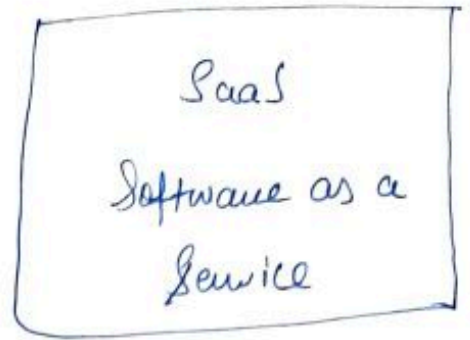 SaaS
Software as a
Service